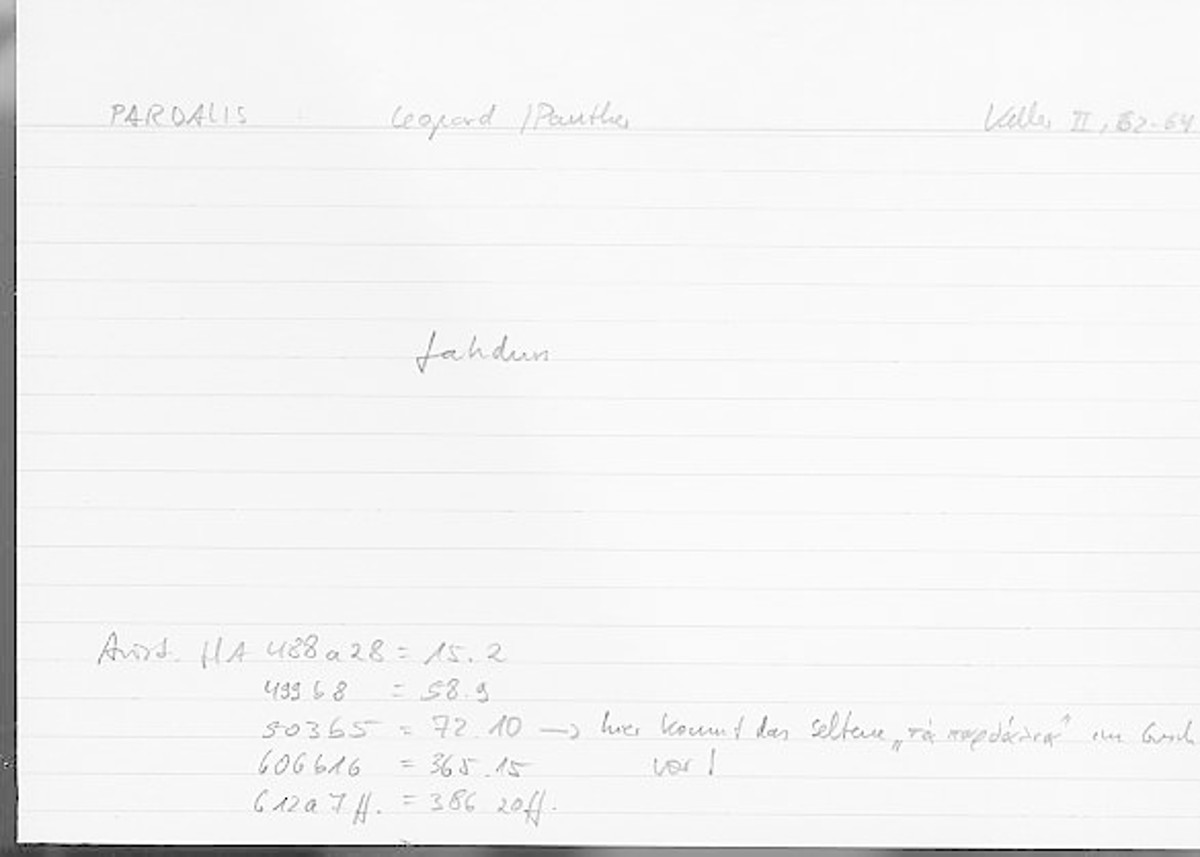 PARDALIS Leopard / Panther Keller II, 62-64
Arist. HA 488a28 = 15.2
499b8 = 58.9
503b5 = 72.10 → hier kommt das seltene „τὰ παρδάλια“ im
606b16 = 365.15 vor!
612a7ff. = 386.20ff.